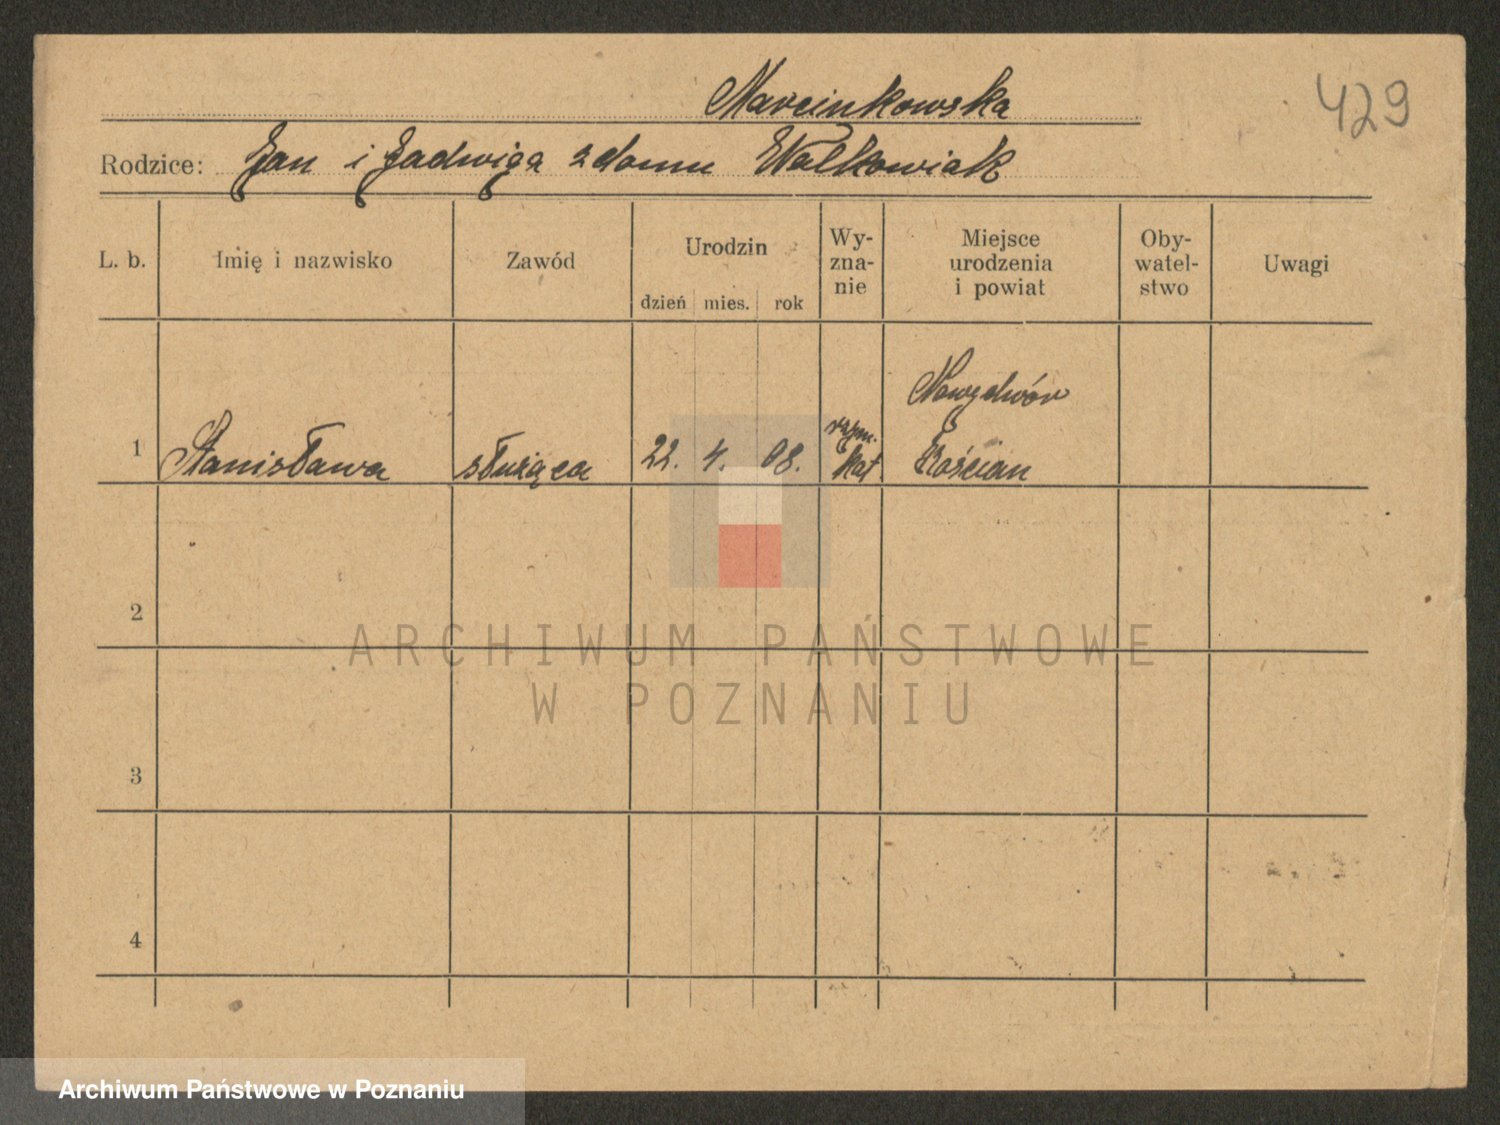 Marcinkowska
429
Rodzice: Jan i Jadwiga z domu Walkowiak
L. b. Imię i nazwisko Zawód Urodzin dzień mies. rok Wy-
zna-
nie Miejsce
urodzenia
i powiat Oby-
watel-
stwo Uwagi
1 Stanisława służąca 22. 4. 08. rzym.
kat. Nowydwór
Kościan
2
3
4
ARCHIWUM PAŃSTWOWE
W POZNANIU
Archiwum Państwowe w Poznaniu